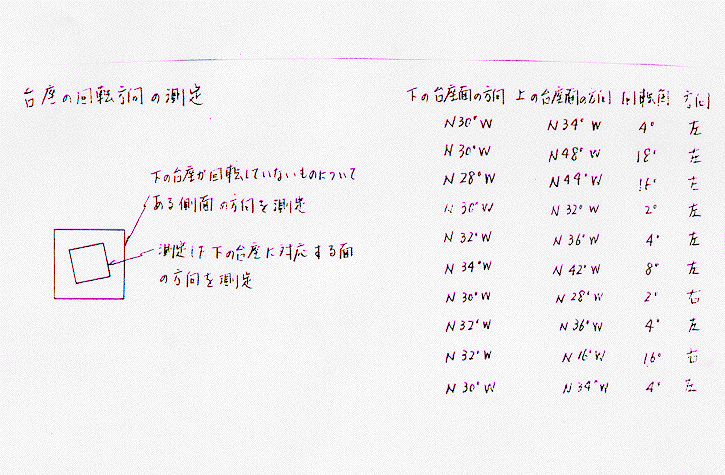 台座の回転方向の測定
下の台座が回転していないものについて
ある側面の方向を測定
測定した下の台座に対応する面
の方向を測定
下の台座面の方向 上の台座面の方向 回転角 方向
N30°W N34°W 4° 左
N30°W N48°W 18° 左
N28°W N44°W 16° 左
N30°W N32°W 2° 左
N32°W N36°W 4° 左
N34°W N42°W 8° 左
N30°W N28°W 2° 右
N32°W N36°W 4° 左
N32°W N16°W 16° 右
N30°W N34°W 4° 左